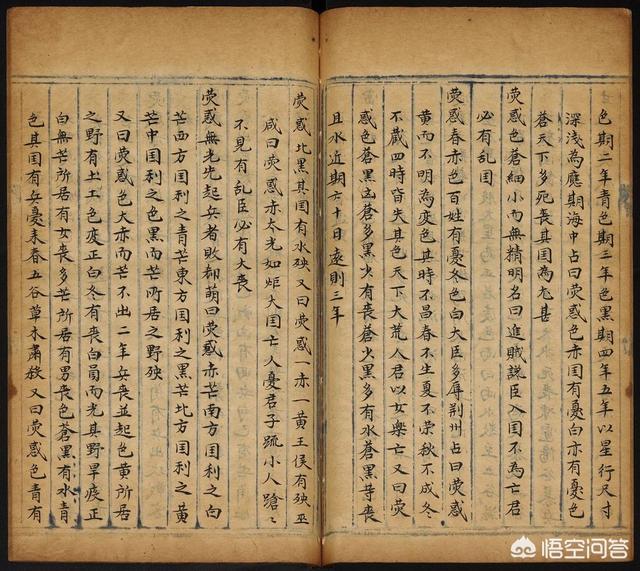 色期二年青色期三年色黑期四年五年以星行尺寸
深浅為應期海中占曰荧惑色赤国有憂白亦有憂色
蒼天下多死喪其国為尤甚
荧惑色蒼細小而無精明名曰進賊謀臣入国不為亡君
必有乱国
荧惑春赤色百姓有憂冬色白大臣多辱荆州占曰荧惑
黄而不明為变色其時不昌春不生夏不荣秋不成冬
不藏四時皆失其色天下大荒人君以女樂亡又曰荧
惑色蒼黑凶蒼多黑少有喪蒼少黑多有水蒼黑等喪
且水近期六十日遠則三年
荧惑比黑其国有水殃又曰荧惑赤一黄王侯有殃巫
咸曰荧惑赤太光如炬大国亡人憂君子疏小人蹌〻
不見有乱臣必有大喪
荧惑無光先起兵者敗郗萌曰荧惑赤芒南方国利之白
芒西方国利之青芒東方国利之黑芒北方国利之黄
芒中国利之色黑而芒所居之野殃
又曰荧惑色大赤而芒不出二年兵喪並起色黄所居
之野有土工色变正白冬有喪白員而光其野旱疫正
白無芒所居有女喪多芒所居有男喪色蒼黑有水青
色其国有兵憂来春五谷草木肅殺又曰荧惑色青有
悟空问答